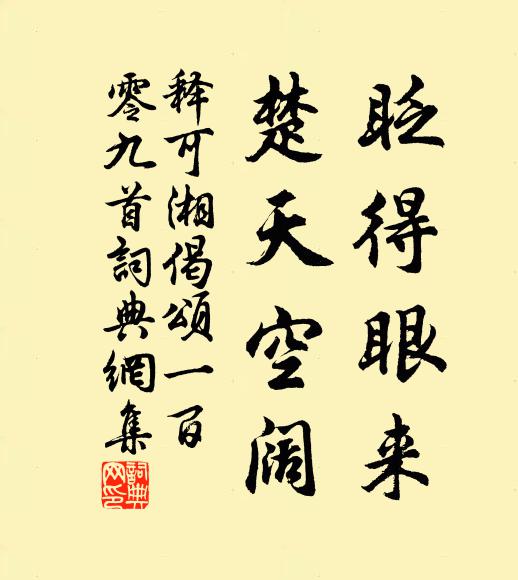 眨得眼来
楚天空阔
释可湘偈頌一百
零九首詞典網集
詞典
网印